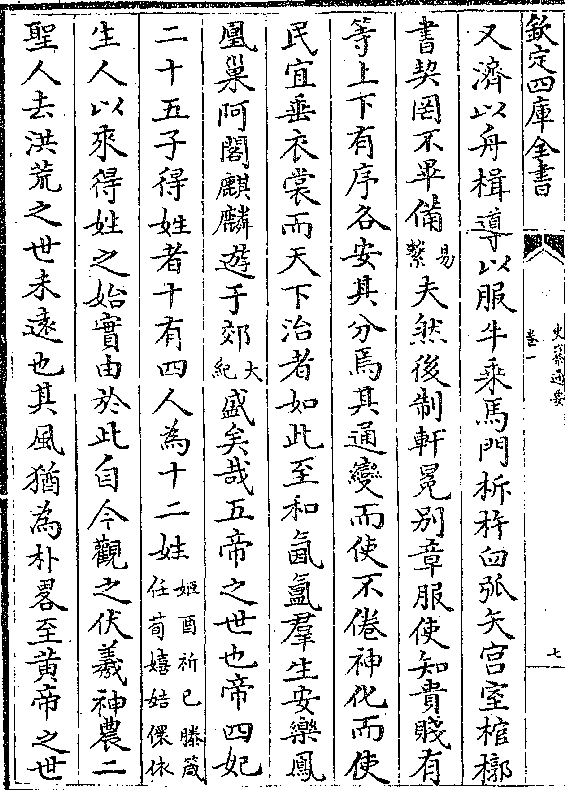 欽定四庫全書
史纂通要
卷一
七
又濟以舟楫導以服牛乘馬門柝杵臼弧矢宮室棺槨
書契罔不畢備易繫夫然後制軒冕别章服使知貴賤有
等上下有序各安其分焉其通變而使不倦神化而使
民宜垂衣裳而天下治者如此至和氤氳羣生安樂鳳
凰巢阿閣麒麟遊于郊大紀盛矣哉五帝之世也帝四妃
二十五子得姓者十有四人為十二姓姬酉祈已滕葴任荀嬉姞儇依
生人以來得姓之始實由於此自今觀之伏羲神農二
聖人去洪荒之世未遠也其風猶為朴畧至黄帝之世